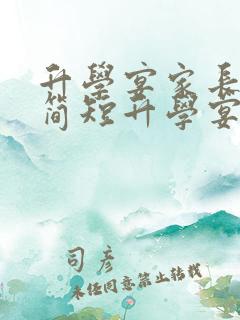 升學宴家長
简短升學宴
司彦
未经同意禁止转载